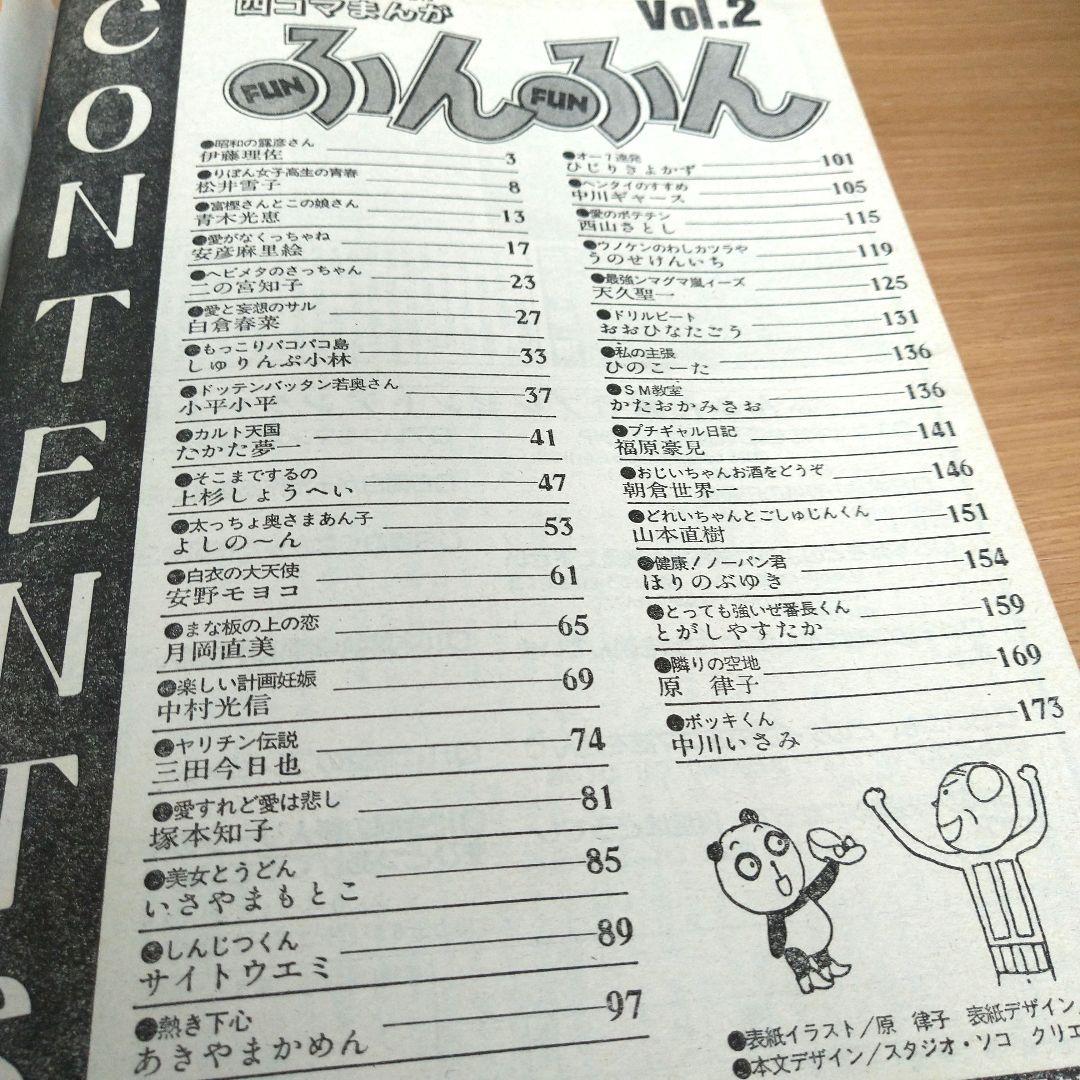 CONTENTS
四コマまんが
Vol.2
FUNふんFUNふん
●昭和の露彦さん
伊藤理佐 3
●りぼん女子高生の青春
松井雪子 8
●富樫さんとこの娘さん
青木光恵 13
●愛がなくっちゃね
安彦麻里絵 17
●ヘビメタのさっちゃん
二の宮知子 23
●愛と妄想のサル
白倉春菜 27
●もっこりパコパコ島
しゅりんぷ小林 33
●ドッテンバッタン若奥さん
小平小平 37
●カルト天国
たかた夢一 41
●そこまでするの
上杉しょうへい 47
●太っちょ奥さまあん子
よしの〜ん 53
●白衣の大天使
安野モヨコ 61
●まな板の上の恋
月岡直美 65
●楽しい計画妊娠
中村光信 69
●ヤリチン伝説
三田今日也 74
●愛すれど愛は悲し
塚本知子 81
●美女とうどん
いさやまもとこ 85
●しんじつくん
サイトウエミ 89
●熱き下心
あきやまかめん 97
●オー1連発
ひじりきよかず 101
●ヘンタイのすすめ
中川ギャース 105
●愛のポテチン
西山さとし 115
●ウノケンのわしカツラや
うのせけんいち 119
●最強ンマグマ嵐ィーズ
天久聖一 125
●ドリルビート
おおひなたごう 131
●私の主張
ひのこーた 136
●SM教室
かたおかみさお 136
●プチギャル日記
福原豪見 141
●おじいちゃんお酒をどうぞ
朝倉世界一 146
●どれいちゃんとごしゅじんくん
山本直樹 151
●健康！ノーパン君
ほりのぶゆき 154
●とっても強いぜ番長くん
とがしやすたか 159
●隣りの空地
原 律子 169
●ボッキくん
中川いさみ 173
●表紙イラスト/原 律子 表紙デザイン
●本文デザイン/スタジオ・ソコ クリエ